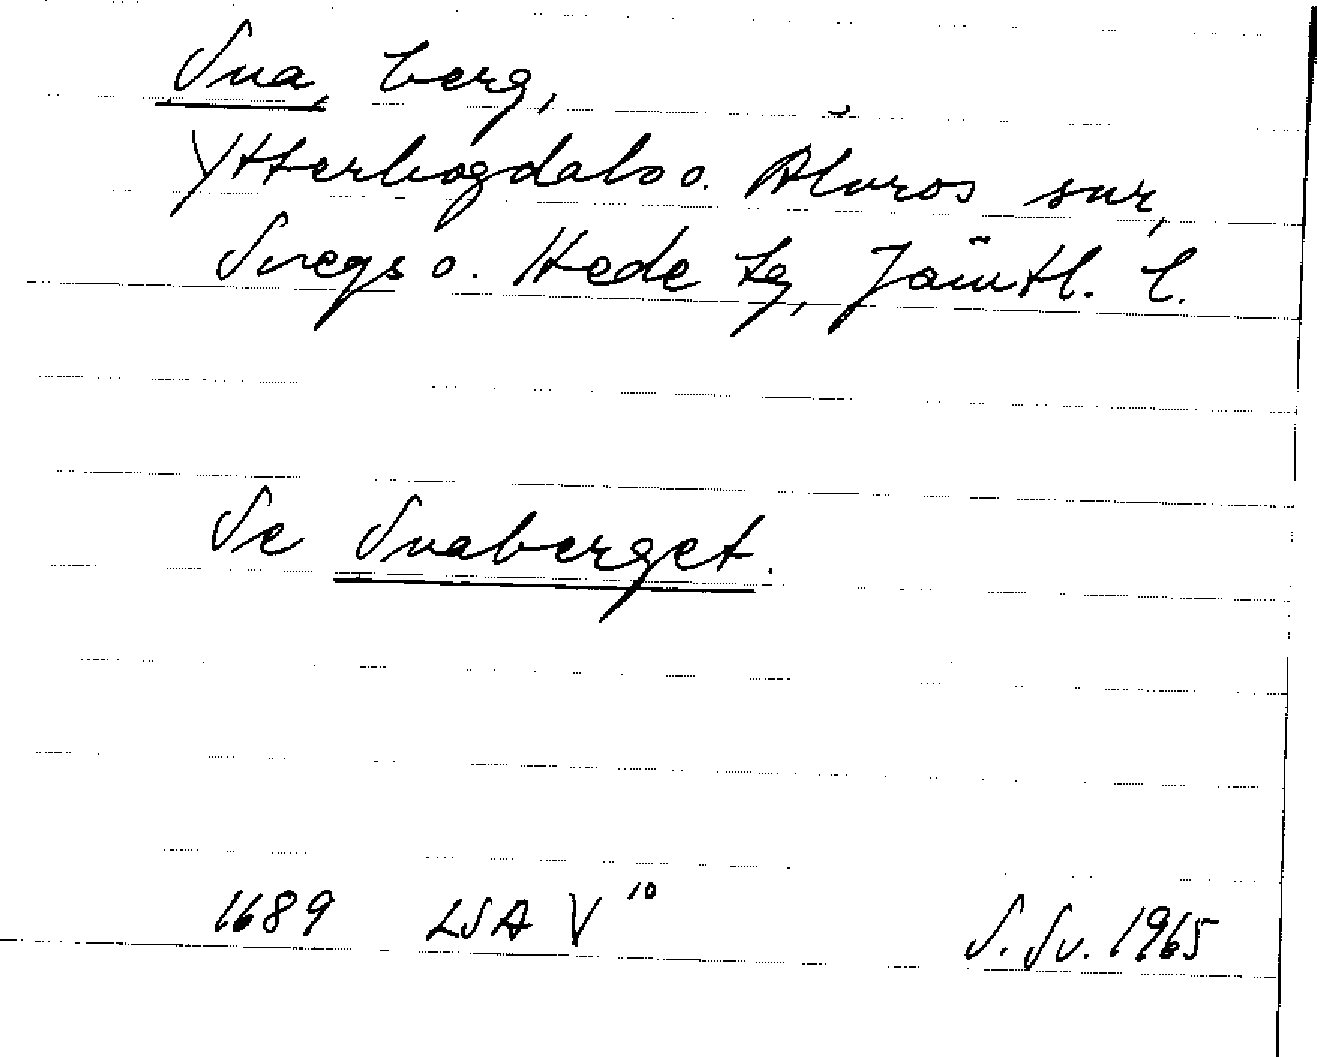 Sua, berg,
Ytterhogdals o. Älvros snr,
Svegs o. Hede tg, Jämtl. l.
Se Suaberget.
1689 LSA V 10
S. Sv. 1965